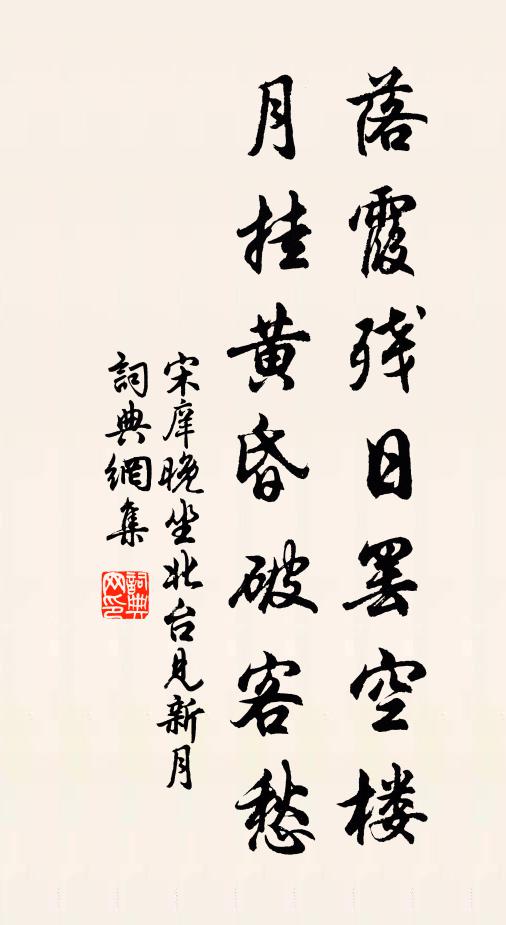 落霞残日罢空楼
月挂黄昏破客愁
宋庠晚坐北台见新月
詞典網集
詞典网印